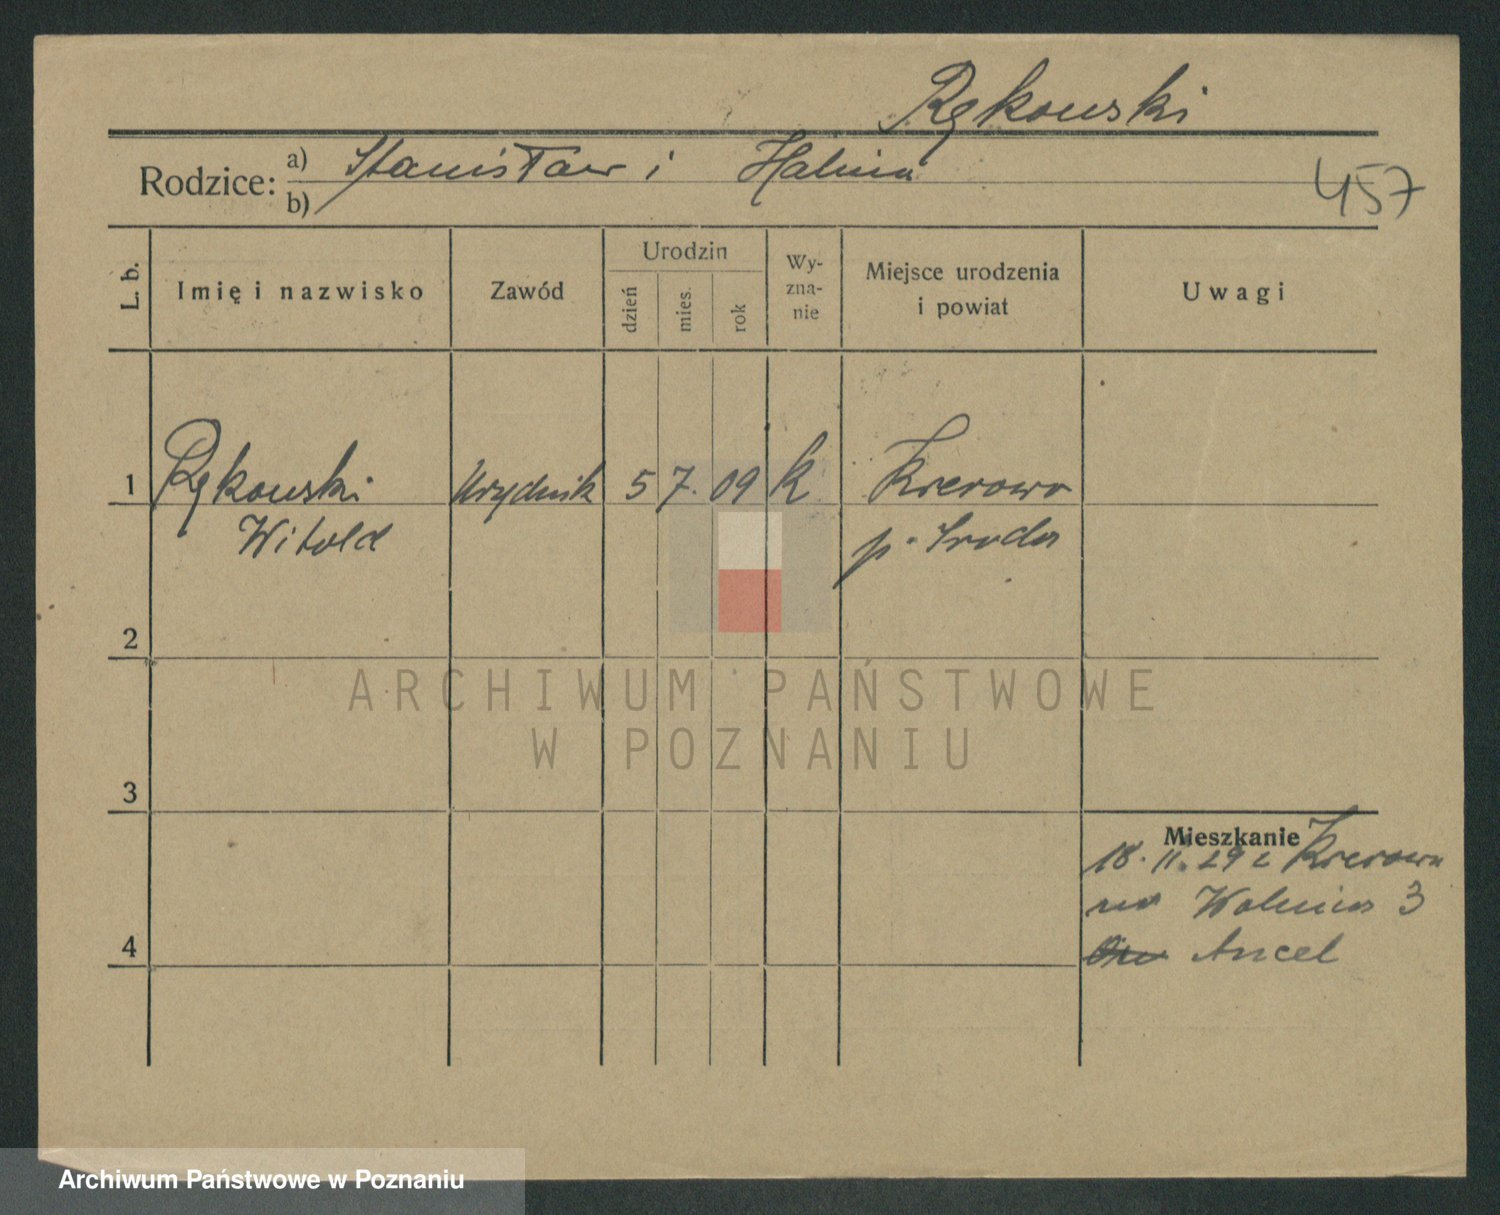 Rękowski
Rodzice: a) Stanisław i Halina
b)
457
L. b.
Imię i nazwisko
Zawód
Urodzin
dzień
mies.
rok
Wy-
zna-
nie
Miejsce urodzenia
i powiat
Uwagi
1 Rękowski Urzędnik 5 7. 09 k Krerowo
Witold p. Środa
2
ARCHIWUM PAŃSTWOWE
W POZNANIU
3
Mieszkanie
18. 11. 29 z Krerowa
na Wolnica 3
Ancel
4
Archiwum Państwowe w Poznaniu